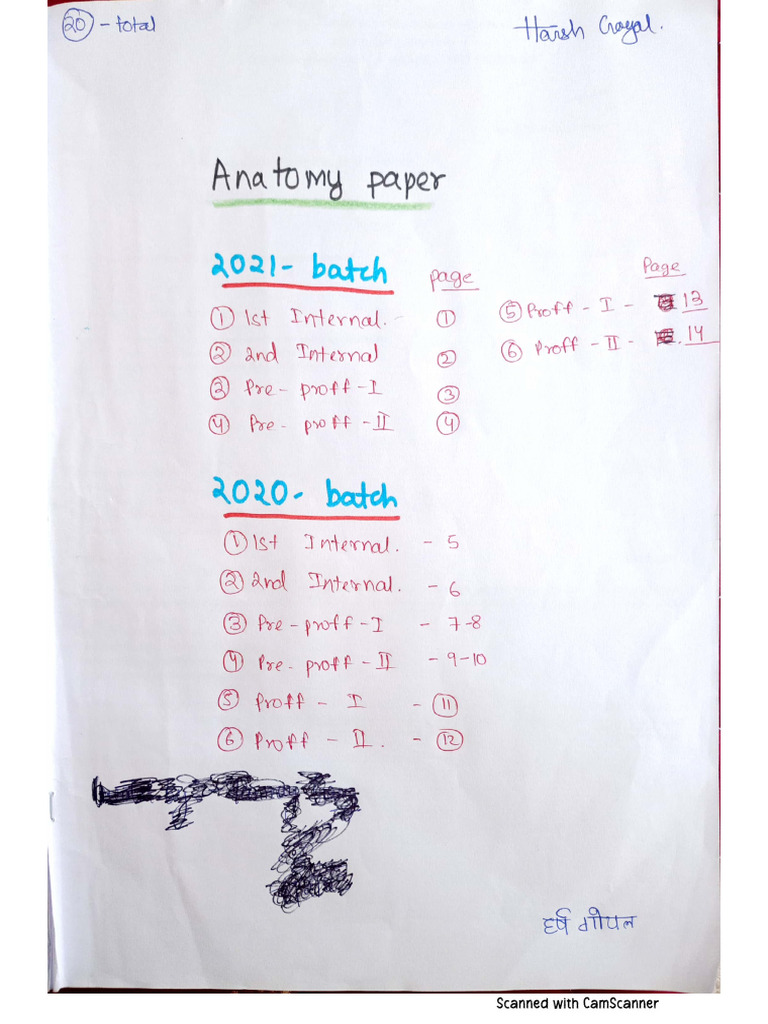 20 - total
Harsh Goyal.
Anatomy paper
2021- batch page
① 1st Internal. - ①
② 2nd Internal ②
② Pre- proff - I ③
④ Pre- proff - II ④
Page
⑤ Proff - I - 13
⑥ Proff - II - 14
2020- batch
① 1st Internal. - 5
② 2nd Internal. - 6
③ Pre-proff-I - 7-8
④ Pre- proff - II - 9-10
⑤ Proff - I - ⑪
⑥ Proff - II. - ⑫
हर्ष गोयल
Scanned with CamScanner